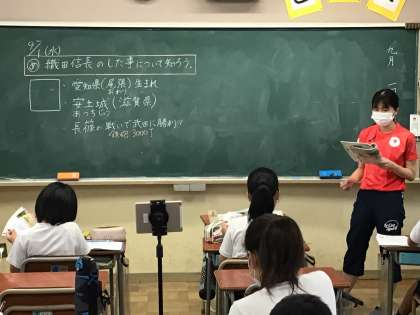 9/1(水)
め 織田信長のした事について知ろう。
・愛知県(尾張)生まれ
おわり
・安土城(滋賀県)
あづちじょう
・長篠の戦いで武田に勝利!!
鉄砲3000丁
九月
一